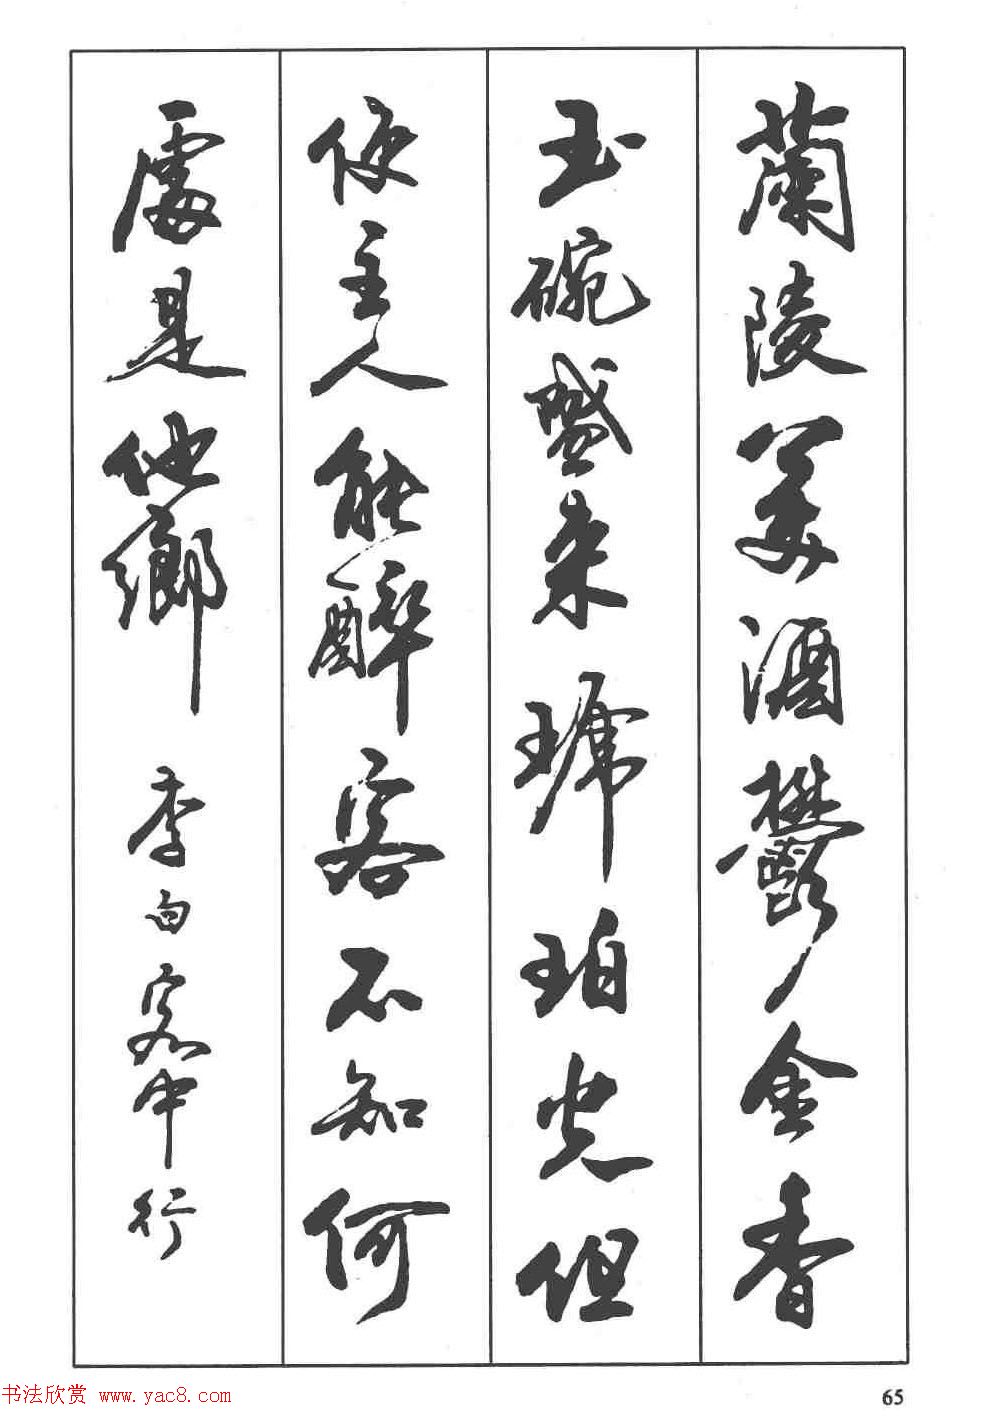 蘭陵美酒鬱金香
玉碗盛來琥珀光但
使主人能醉客不知何
處是他鄉 李白客中行
65
书法欣赏 www.yac8.com